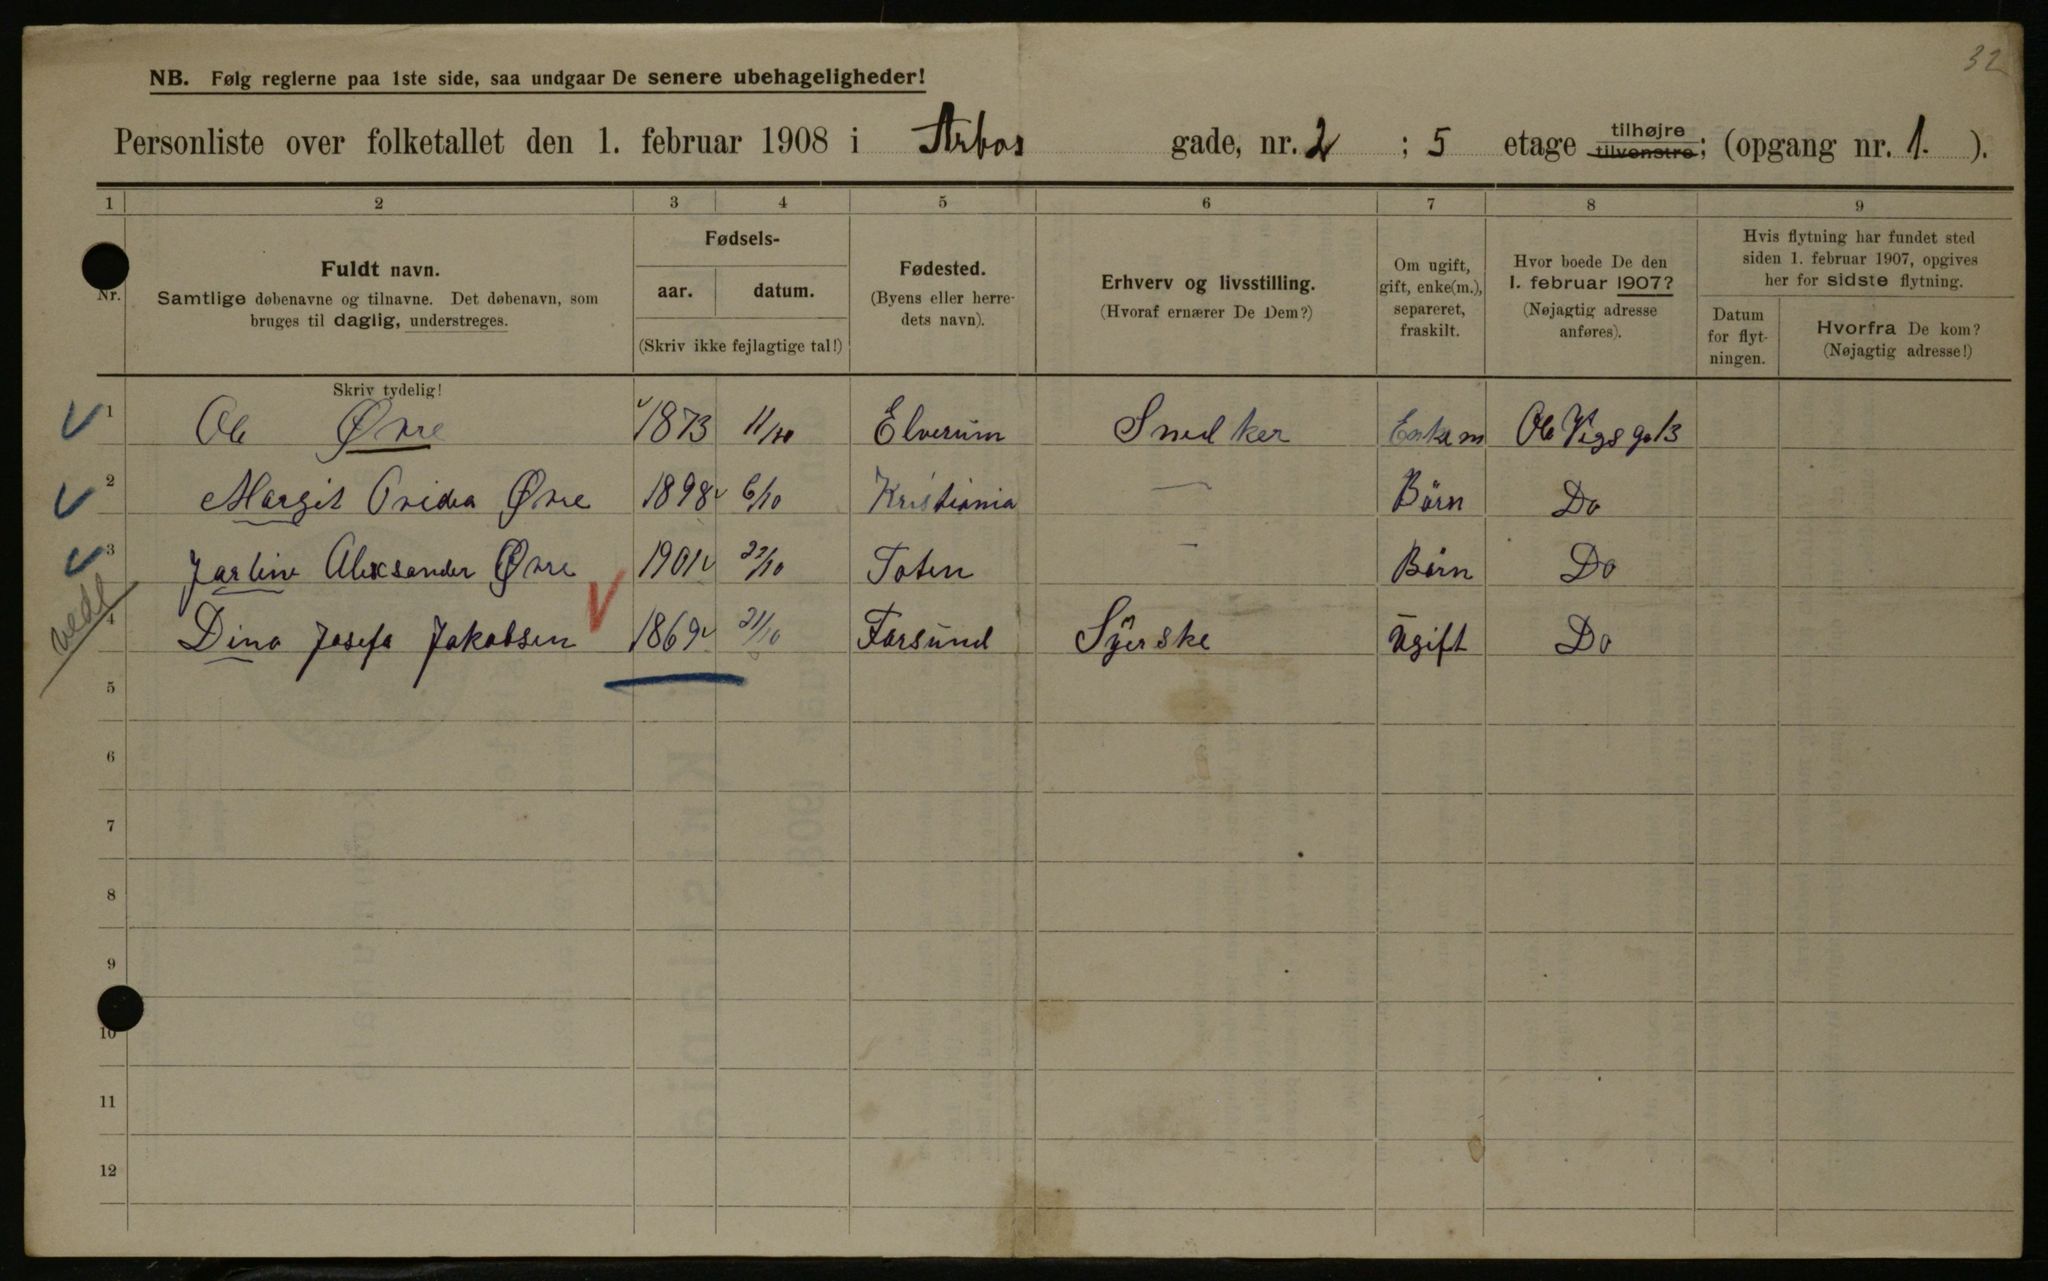 32
NB. Følg reglerne paa 1ste side, saa undgaar De senere ubehageligheder!
Personliste over folketallet den 1. februar 1908 i Arbos gade, nr. 2 ; 5 etage tilhøjre tilvenstre; (opgang nr. 1. ).
1 2 3 4 5 6 7 8 9
Nr.
Fuldt navn.
Samtlige døbenavne og tilnavne. Det døbenavn, som
bruges til daglig, understreges.
Skriv tydelig!
Fødsels-
aar. datum.
(Skriv ikke fejlagtige tal!)
Fødested.
(Byens eller herre-
dets navn).
Erhverv og livsstilling.
(Hvoraf ernærer De Dem?)
Om ugift,
gift, enke(m.),
separeret,
fraskilt.
Hvor boede De den
1. februar 1907?
(Nøjagtig adresse
anføres).
Hvis flytning har fundet sted
siden 1. februar 1907, opgives
her for sidste flytning.
Datum
for flyt-
ningen.
Hvorfra De kom?
(Nøjagtig adresse!)
1 Ole Øvre 1873 11/10 Elverum Snedker Enkem Ole Vigs g. 13
2 Margit Ovidia Øvre 1898 6/10 Kristiania — Börn Do
3 Aleksander Øvre 1901 22/10 Toten — Börn Do
vedl
4 Dina Josefa Jakobsen 1869 21/10 Farsund Syerske Ugift Do
5
6
7
8
9
10
11
12